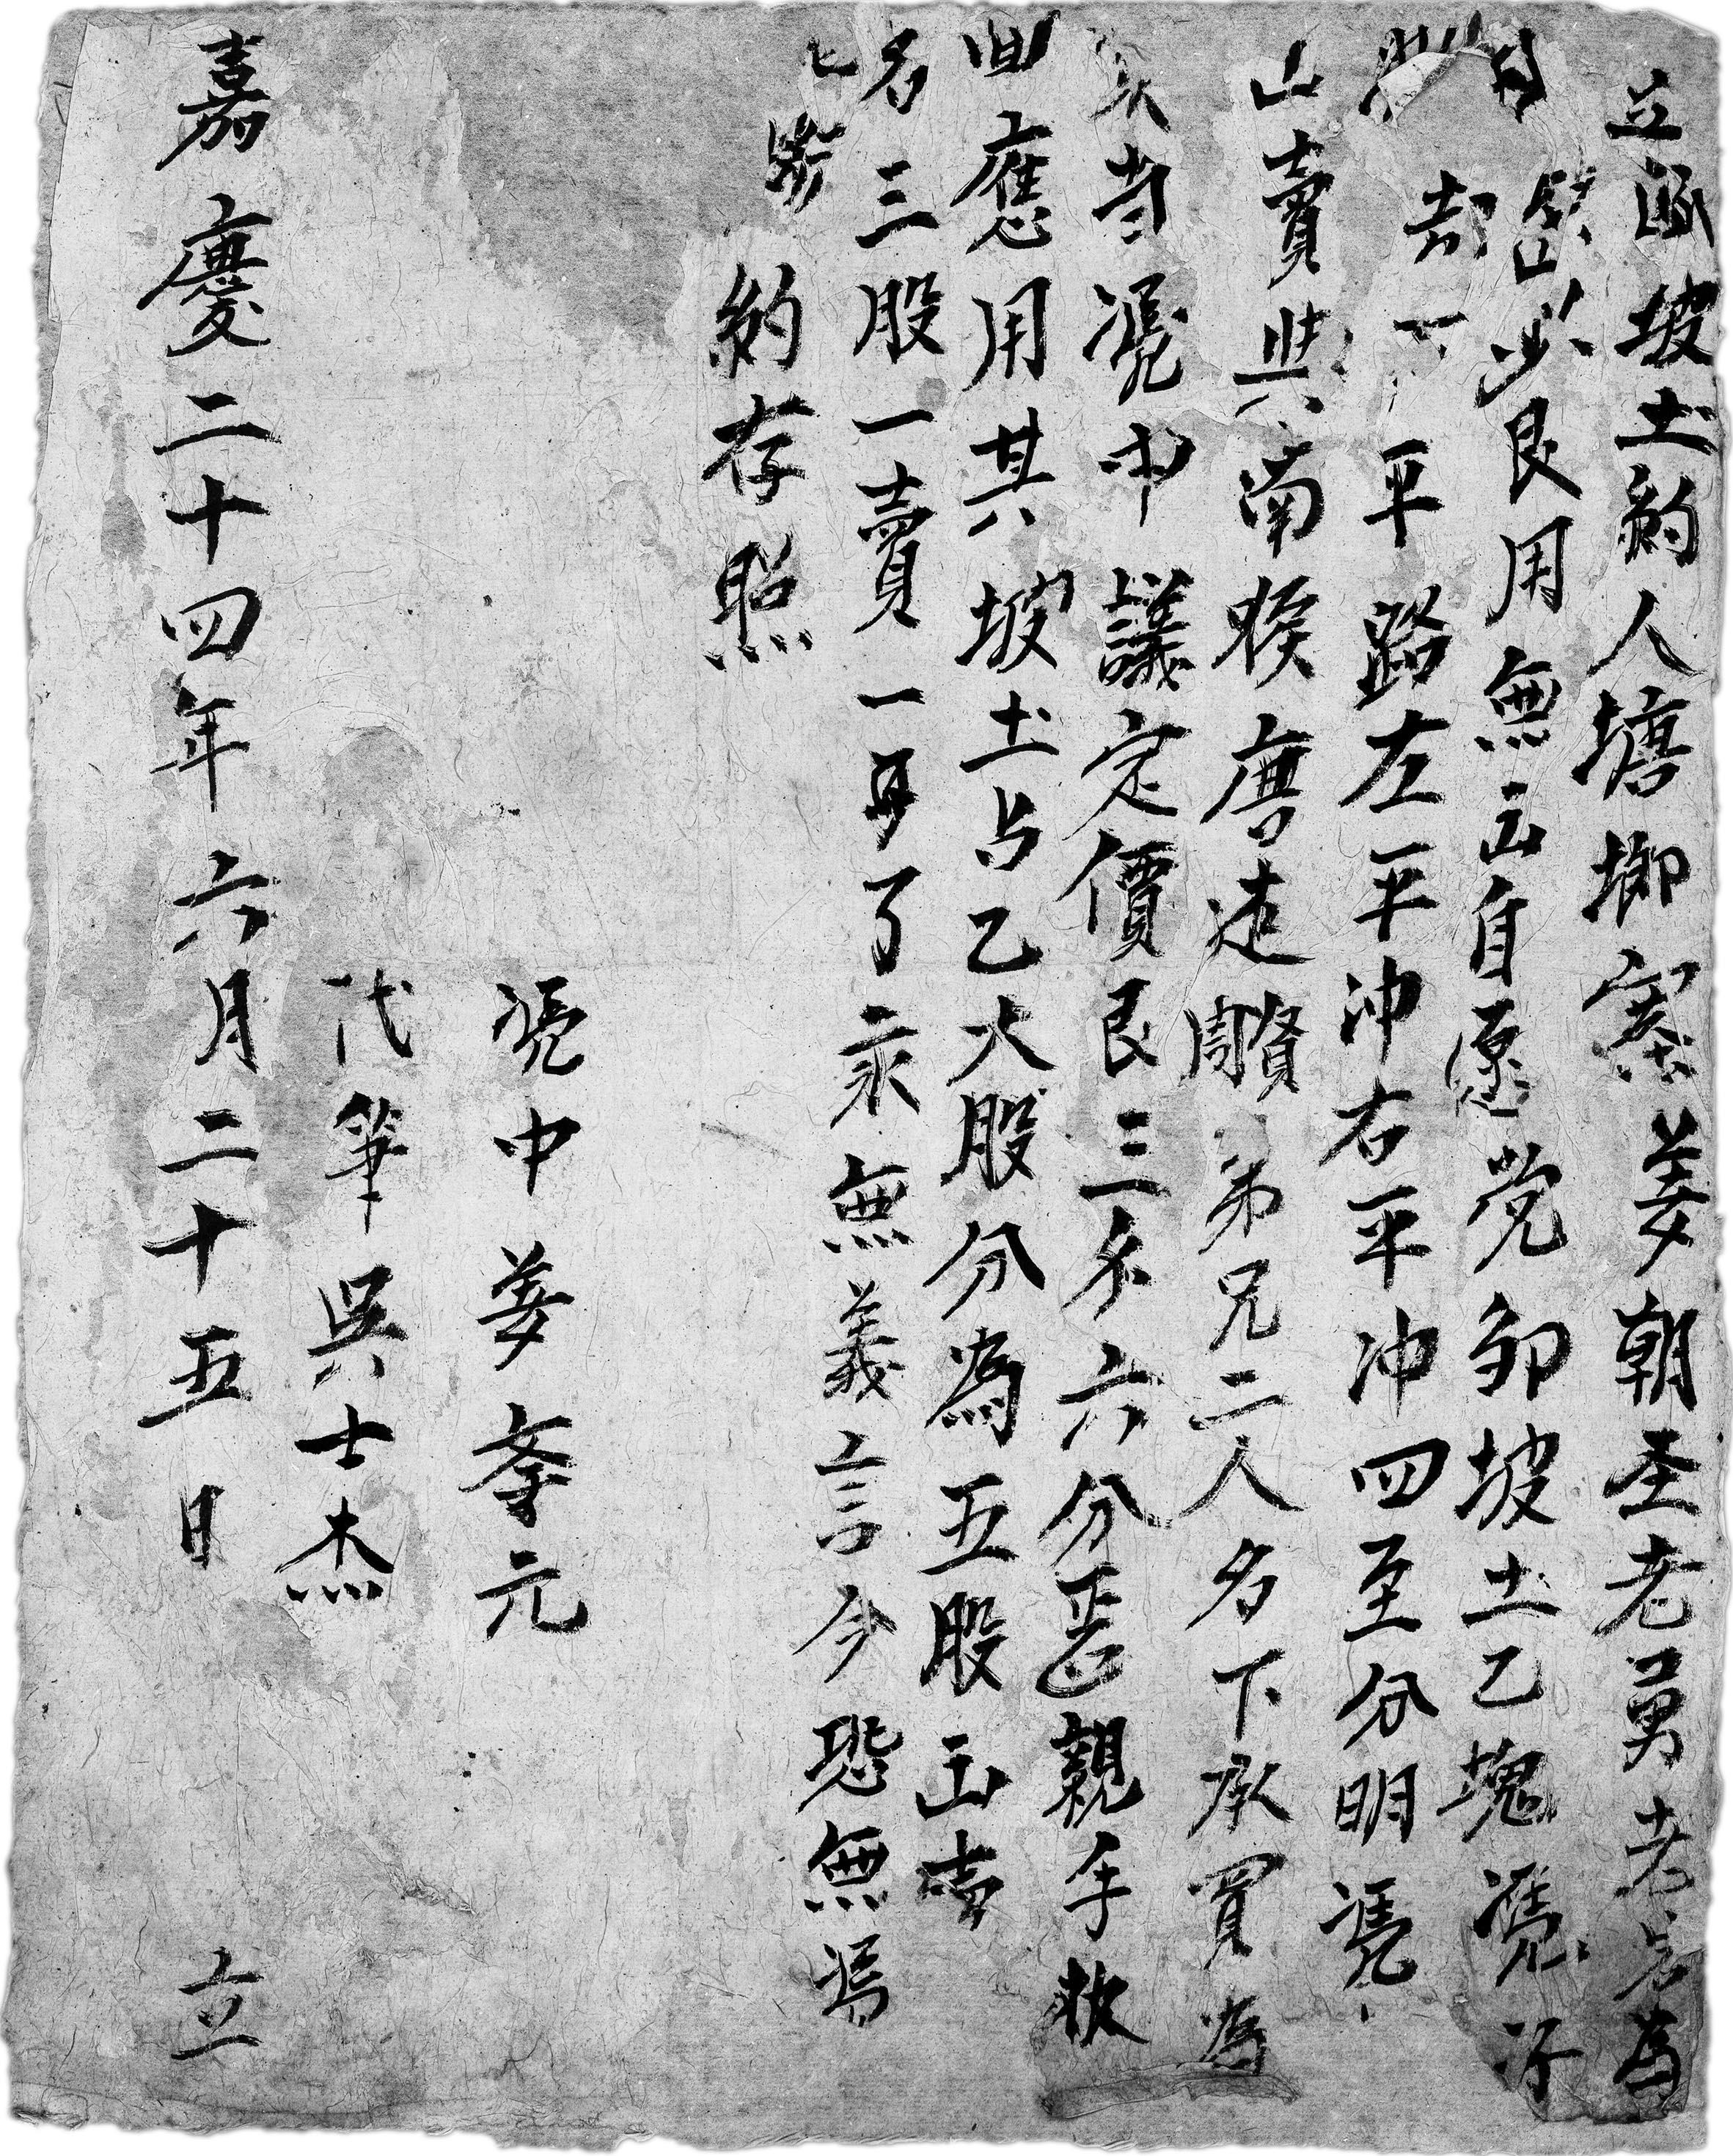 立断坡土約人塘𡊠寨姜朝圣老勇老岩為
因缺少艮用無出自愿党卯坡土乙塊憑
却下平路左平冲右平冲四至分明凴
山賣與南猴唐走賙賢弟兄二人名下承買為
者凴中議定價艮三不六分正親手收
回應用其坡土占乙大股分為五股出賣
名三股一賣一了永無義言今恐無凴
断
約存照
凴中姜奉元
代筆吳士杰
嘉慶二十四年六月二十五日立